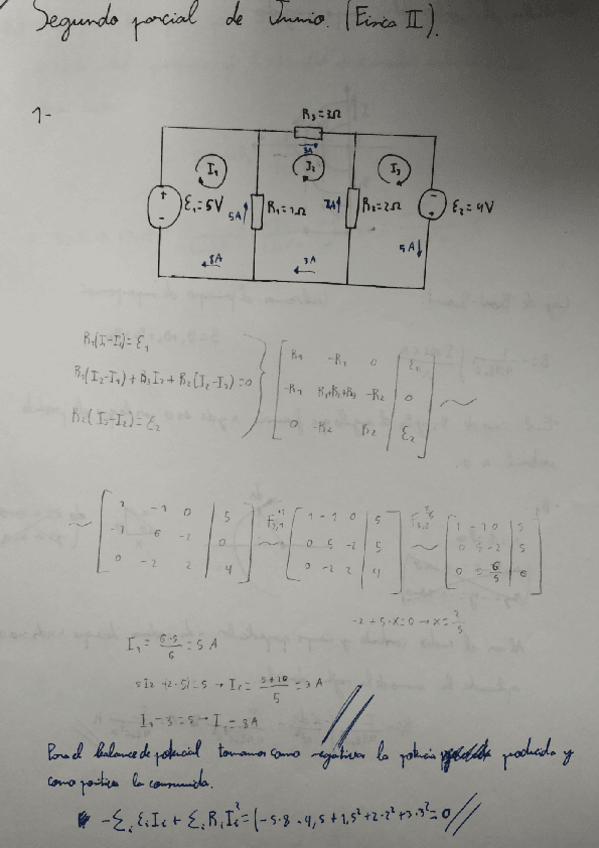 Segundo parcial de Junio. (Física II).
1-
R₃=3Ω
3A
I₁
I₂
I₃
+
-
ε₁=5V
5A
R₁=1Ω
2A
R₂=2Ω
-
+
ε₂=4V
5A
8A
3A
R₁(I₁-I₂)=ε₁
R₁(I₂-I₁)+R₃I₂+R₂(I₂-I₃)=0
R₂(I₃-I₂)=ε₂
R₁ -R₁ 0 | ε₁
-R₁ R₁+R₂+R₃ -R₂ | 0
0 -R₂ R₂ | ε₂
~
~
1 -1 0 | 5
-1 6 -2 | 0
0 -2 2 | 4
~
1 -1 0 | 5
0 5 -2 | 5
0 -2 2 | 4
~
1 -1 0 | 5
0 5 -2 | 5
0 0 6/5 | 6
-2+5·x=0→x=2/5
= 6·5/6 = 5 A
= 5+10/5 = 3 A
Para el balance de potencial tomamos como negativa la potencia producida y
como positiva la consumida.
-Σᵢ εᵢIᵢ + Σᵢ RᵢIᵢ²